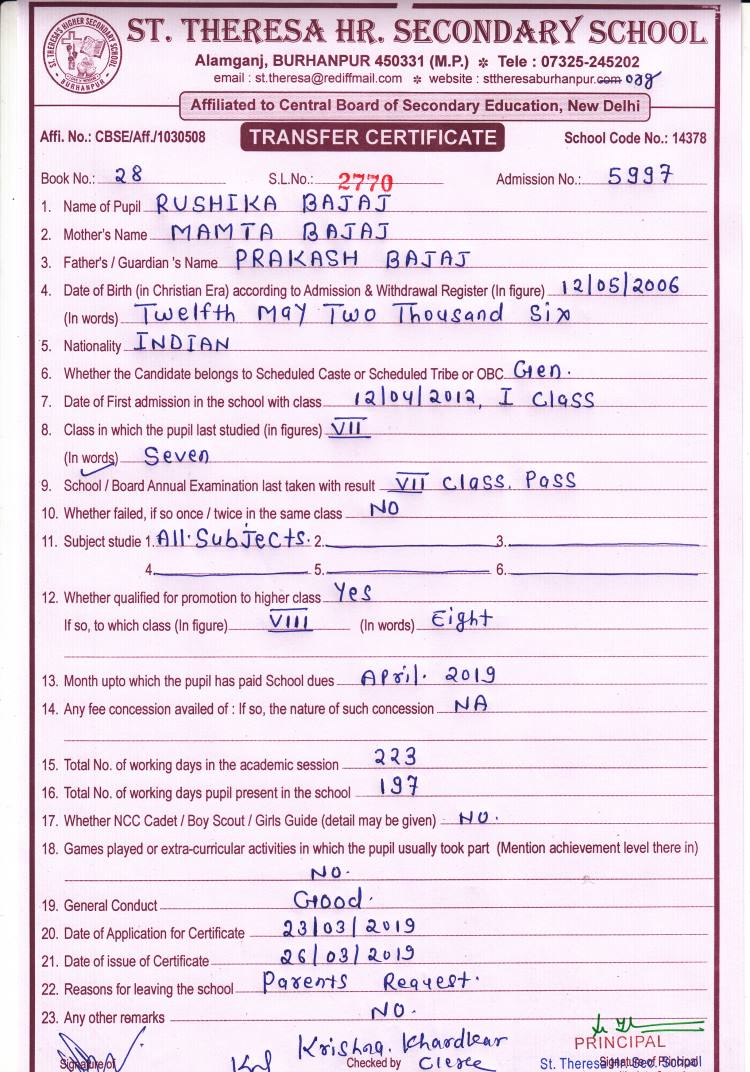 ST. THERESA HR. SECONDARY SCHOOL
Alamganj, BURHANPUR 450331 (M.P.) * Tele : 07325-245202
email : st.theresa@rediffmail.com * website : sttheresaburhanpur.com org
Affiliated to Central Board of Secondary Education, New Delhi
Affi. No.: CBSE/Aff./1030508 TRANSFER CERTIFICATE School Code No.: 14378
Book No.: 28 S.L.No.: 2770 Admission No.: 5997
1. Name of Pupil RUSHIKA BAJAJ
2. Mother's Name MAMTA BAJAJ
3. Father's / Guardian 's Name PRAKASH BAJAJ
4. Date of Birth (in Christian Era) according to Admission & Withdrawal Register (In figure) 12/05/2006
(In words) Twelfth May Two Thousand Six
5. Nationality INDIAN
6. Whether the Candidate belongs to Scheduled Caste or Scheduled Tribe or OBC Gen.
7. Date of First admission in the school with class 12/04/2012, I Class
8. Class in which the pupil last studied (in figures) VII
(In words) Seven
9. School / Board Annual Examination last taken with result VII Class. Pass
10. Whether failed, if so once / twice in the same class NO
11. Subject studie 1. All Subjects. 2. 3.
4. 5. 6.
12. Whether qualified for promotion to higher class Yes
If so, to which class (In figure) VIII (In words) Eight
13. Month upto which the pupil has paid School dues April. 2019
14. Any fee concession availed of : If so, the nature of such concession NA
15. Total No. of working days in the academic session 223
16. Total No. of working days pupil present in the school 197
17. Whether NCC Cadet / Boy Scout / Girls Guide (detail may be given) NO.
18. Games played or extra-curricular activities in which the pupil usually took part (Mention achievement level there in)
NO.
19. General Conduct Good.
20. Date of Application for Certificate 23/03/2019
21. Date of issue of Certificate 26/03/2019
22. Reasons for leaving the school Parents Request.
23. Any other remarks NO.
Krishna. Khardkar
PRINCIPAL
Signature of Checked by St. Theresa Hr. Sec. School Signature of Principal